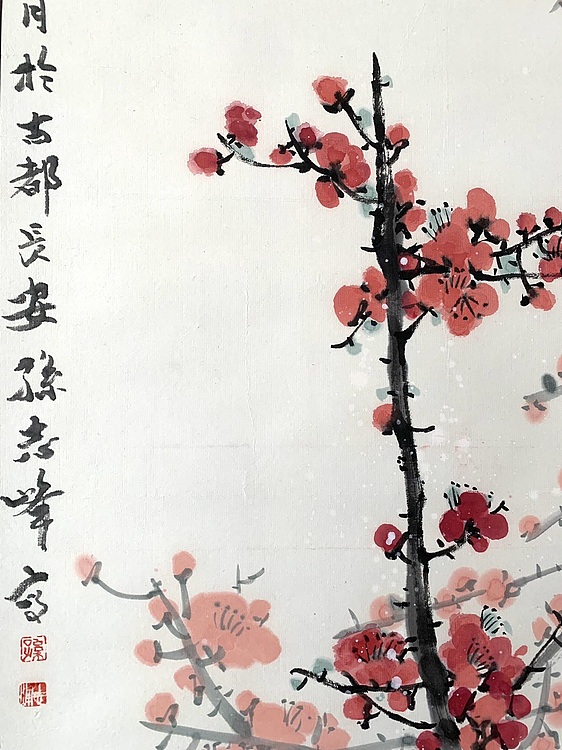 月於古都長安孫志峰寫